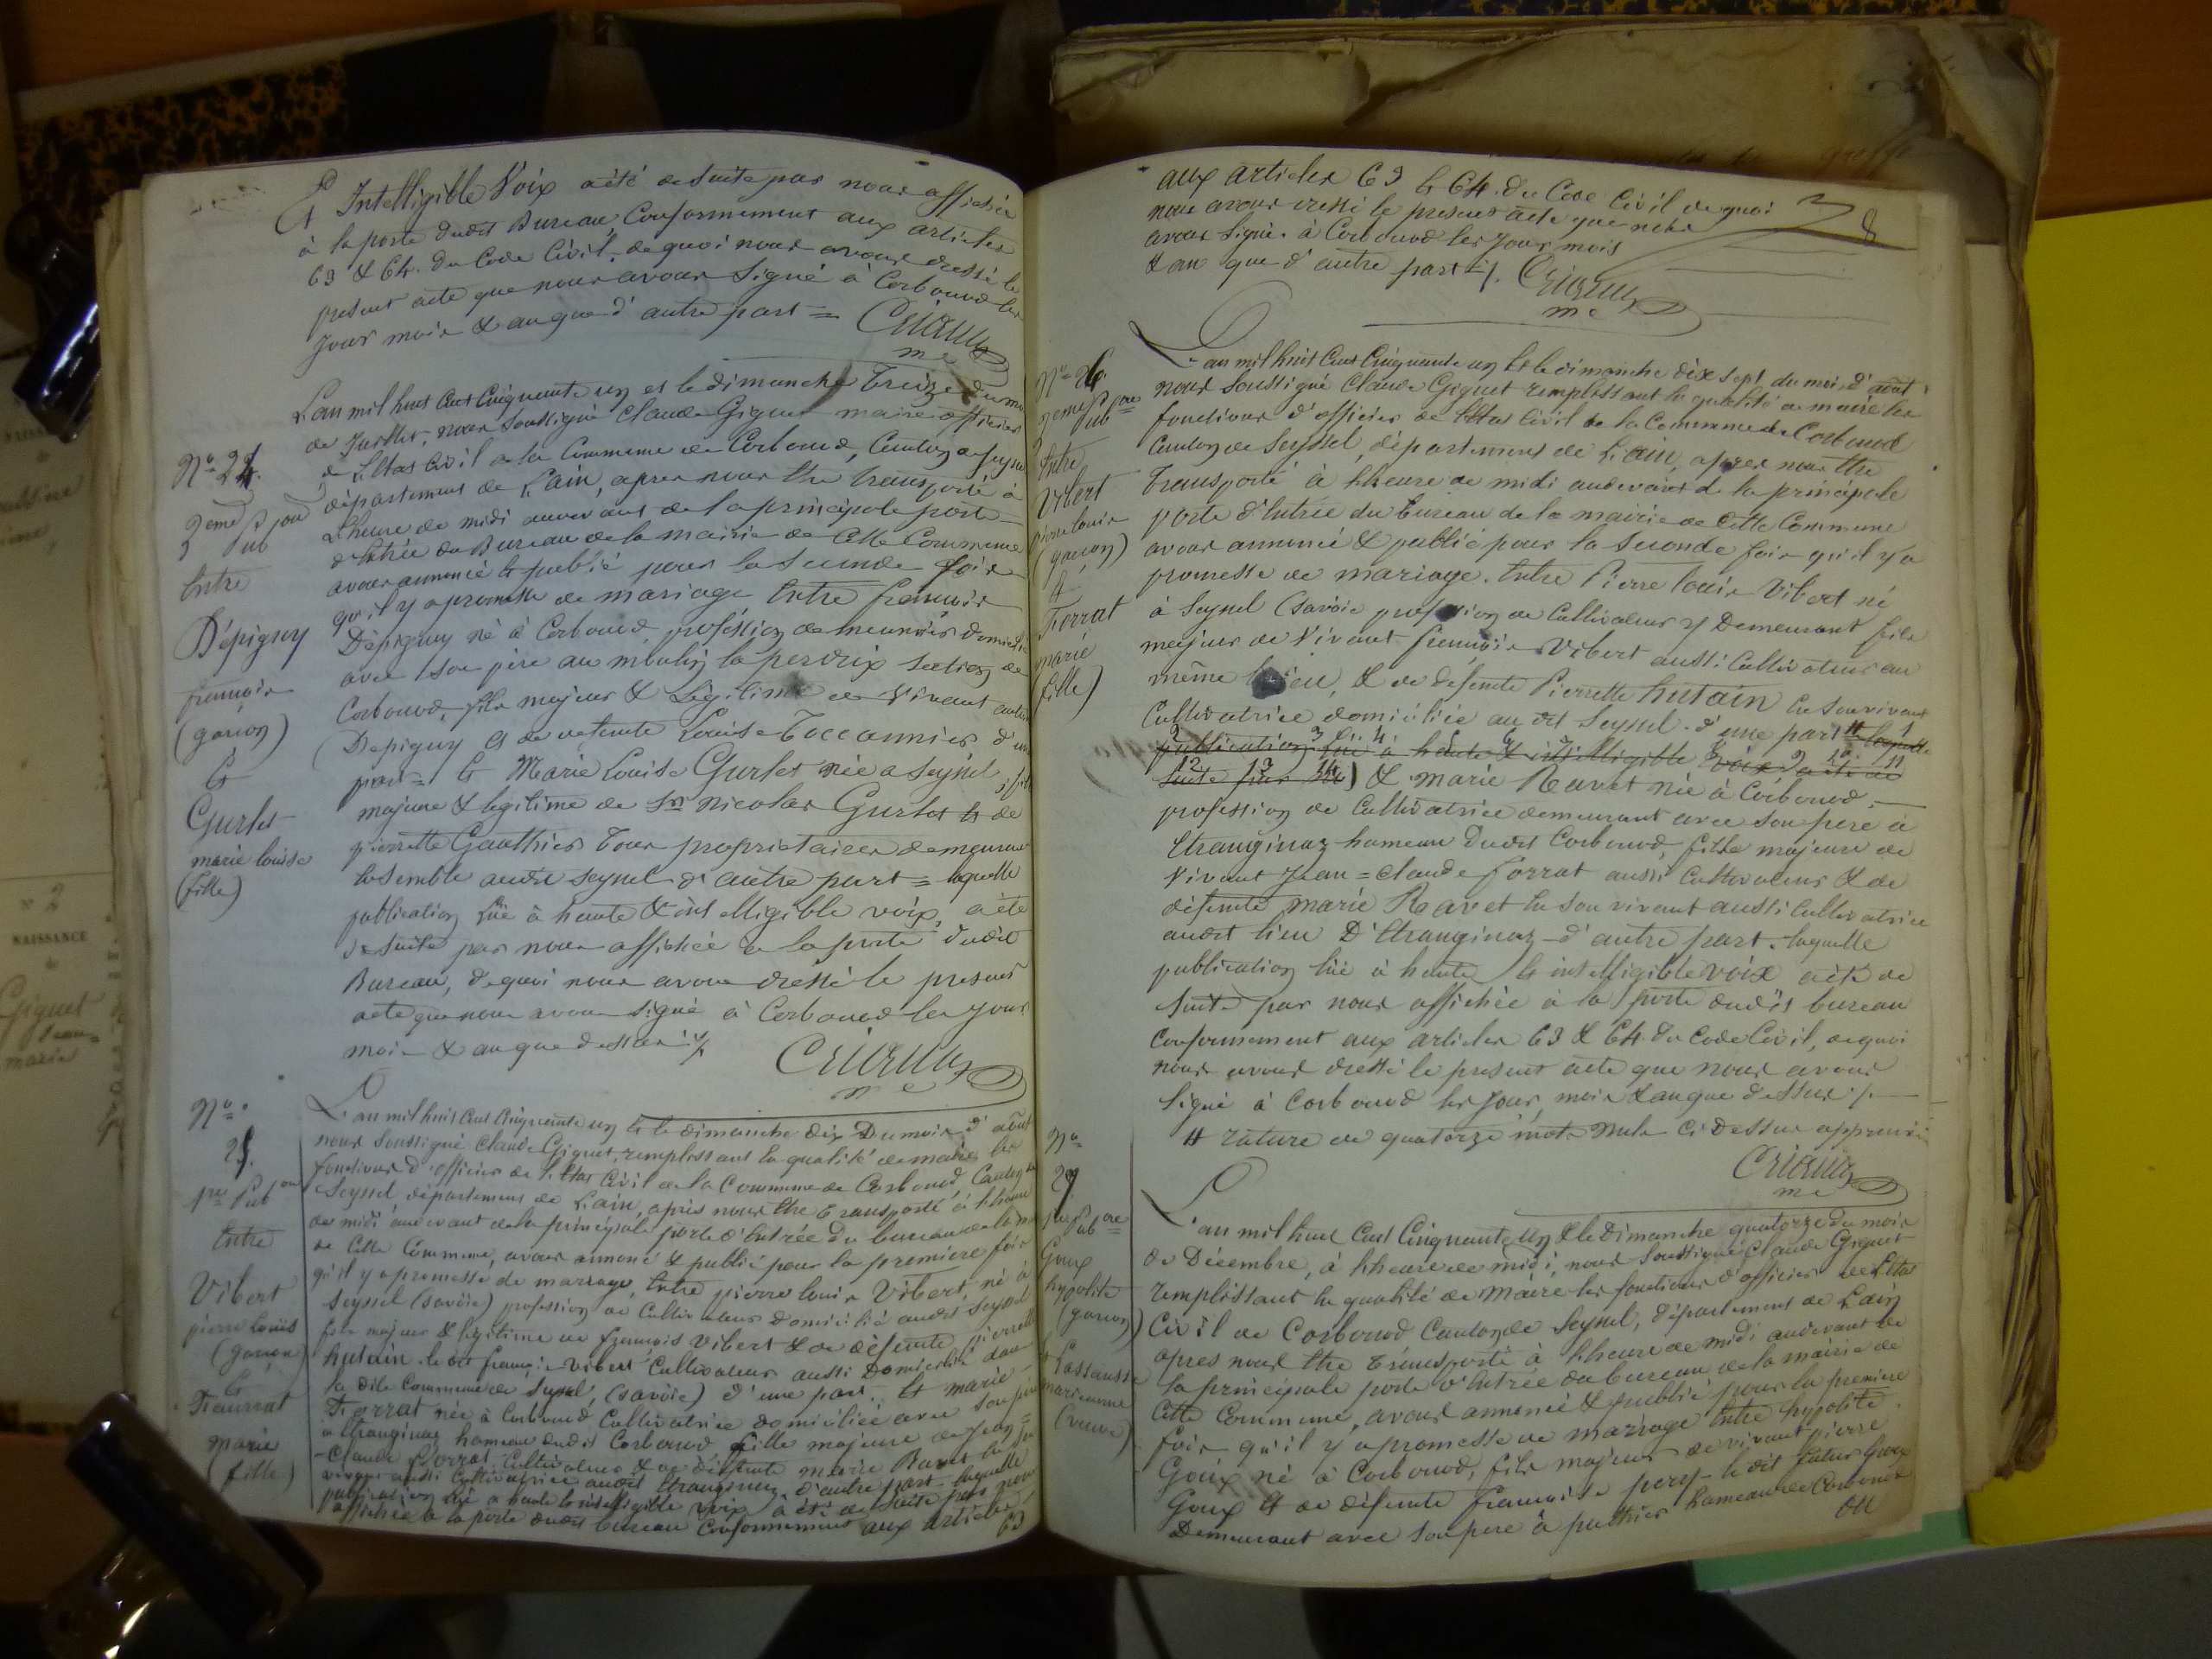 Et Intelligible Voix a été de suite par nous affichée
à la porte dudit Bureau, Conformement aux articles
63 & 64. du Code Civil, de quoi nous avons dressé le
present acte que nous avons signé à Corbonod les
jour mois & an que d'autre part =
me
Nº 24.
2eme Pub on
Entre
Dépigny
françois
(garçon)
Et
Gurlet
marie louise
(fille)
L'an mil huit Cent Cinquante un et le dimanche Treize du mois
de Juillet, nous soussigné Claude Giguet maire officier
de l'Etat Civil de la Commune de Corbonod, Canton de Seyssel
département de L'ain, apres nous être transporté à
L'heure de midi audevant de la principale porte
d'Entrée du Bureau de la mairie de Cette Commune
avons annoncé & publié pour la Seconde fois
qu'il y a promesse de mariage Entre françois
Dépigny né à Corbonod, profession de meunier domicilié
avec son père au moulin la perdrix section de
Corbonod, fils majeur & Légitime de Vivant
Depigny et de defunte Louise Toccannier d'une
part = Et Marie Louise Gurlet née a Seyssel, fille
majeure & legitime de Sr. Nicolas Gurlet et de
pierrette Gauthier Tous proprietaires demeurant
Ensemble audit Seyssel d'autre part = laquelle
publication lüe à haute & intelligible voix, a été
de suite par nous affichée a la porte dudit
Bureau, de quoi nous avons dressé le present
acte que nous avons signé à Corbonod les jour
mois & an que dessus ./.
me
Nº
25.
1re Pub on
Entre
Vibert
pierre louis
(garçon)
Et
Faurrat
marie
(fille)
L'an mil huit Cent Cinquante un & le dimanche dix Du mois d'août
nous soussigné Claude Giguet, remplissant la qualité de maire les
fonctions d'officier de l'Etat Civil de la Commune de Corbonod, Canton de
Seyssel, département de L'ain, après nous être transporté à l'heure
de midi audevant de la principale porte d'Entrée du bureau de la mairie
de Cette Commune, avons annoncé & publié pour la premiere fois
qu'il y a promesse de mariage, Entre pierre louis Vibert, né à
Seyssel (savoie) profession de Cultivateur Domicilié audit Seyssel
fils majeur & légitime de françois Vibert & de défunte pierrette
hutain. le dit françois Vibert Cultivateur aussi Domicilié dans
la dite Commune de Seyssel, (savoie) d'une part. Et marie
Forrat née à Corbonod, Cultivatrice domiciliée avec son père
a Etranginaz hameau dudit Corbonod, fille majeure de Jean =
-Claude Forrat, Cultivateur & de défunte marie Ravet en son
vivant aussi Cultivatrice audit Etranginaz, d'autre part. laquelle
publication lüe a haute & intelligible voix à été de suite par nous
affichée à la porte dudit bureau Conformement aux articles
63
8
aux articles 63 & 64. du Code Civil de quoi
nous avons dressé le present acte que nous
avons signé. à Corbonod les jour mois
& an que d'autre part ./.
me
Nº 26.
2eme Pub on
Entre
Vibert
pierre louis
(garçon)
Et
Forrat
marie
(fille)
L'an mil huit Cent Cinquante un Et le dimanche dix sept du mois d'août
nous soussigné Claude Giguet remplissant la qualité de maire les
fonctions d'officier de l'Etat Civil de la Commune de Corbonod
Canton de Seyssel, département de L'ain, apres nous être
Transporté à l'heure de midi audevant de la principale
porte d'Entrée du bureau de la mairie de Cette Commune
avons annoncé & publié pour la Seconde fois qu'il y a
promesse de mariage. Entre Pierre louis Vibert né
à Seyssel (Savoie profession de Cultivateur y Demeurant fils
majeur de Vivant françois Vibert aussi Cultivateur au
même lieu, & de defunte Pierrette hutain En son vivant
Cultivatrice domiciliée au dit Seyssel. d'une part # laquelle
publication lüe à haute & intelligible voix a été de
suite par nous) & marie Ravet née à Corbonod.
profession de Cultivatrice demeurant avec son pere à
Etranginaz hameau dudit Corbonod, fille majeure de
Vivant Jean = Claude forrat aussi Cultivateur & de
défunte marie Ravet En son vivant aussi Cultivatrice
audit lieu D'Etranginaz d'autre part. laquelle
publication lüe à haute & intelligible voix a été de
suite par nous affichée à la porte dudit bureau
Conformement aux articles 63 & 64. du Code Civil, de quoi
nous avons dressé le present acte que nous avons
signé à Corbonod les jour, mois & an que dessus ./.
# rature de quatorze mots nuls Ci Dessus approuvée
me
Nº
27
1re Pub on
Goux
hypolite
(garçon)
marianne
(veuve)
L'an mil huit Cent Cinquante un & le Dimanche quatorze du mois
de Décembre, à l'heure de midi, nous soussigné Claude Giguet
remplissant la qualité de Maire les fonctions d'officier de L'Etat
Civil de Corbonod Canton de Seyssel, département de L'ain
apres nous être transporté à l'heure de midi audevant de
la principale porte d'Entrée du bureau de la mairie de
Cette Commune, avons annoncé & publié pour la premiere
fois qu'il y a promesse de mariage Entre hypolite
Goux né à Corbonod, fils majeur de vivant pierre
Goux Et de défunte françoise pery - le dit futur Goux
Demeurant avec son pere à puthier hameau de Corbonod